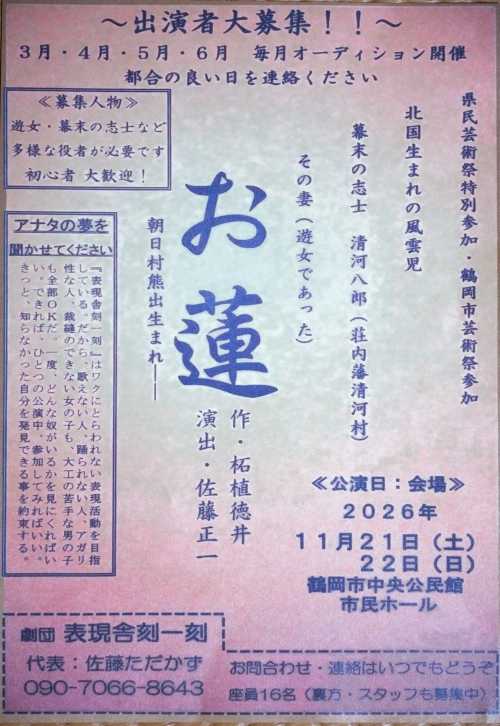 ～出演者大募集！！～
3月・4月・5月・6月　毎月オーディション開催
都合の良い日を連絡ください
≪募集人物≫
遊女・幕末の志士など
多様な役者が必要です
初心者 大歓迎！
県民芸術祭特別参加・鶴岡市芸術祭参加
北国生まれの風雲児
幕末の志士　清河八郎（荘内藩清河村）
その妻（遊女であった）
お蓮
朝日村熊出生まれ――
作・柘植徳井
演出・佐藤正一
アナタの夢を
聞かせてください
『表現舎刻一刻』はワクにとらわれない表現活動を目指
している。だから、歌えない人、踊られない人、アガリ
性な人、裁縫のできない女の子も、大工の苦手な男の子
も全部OKだ。一度、どんな奴がいるか見にくればいい。
い。できれば、ひとつの公演中、参加してみればいい。
きっと、知らなかった自分を発見できる事を約束する。
≪公演日：会場≫
2026年
11月21日（土）
22日（日）
鶴岡市中央公民館
市民ホール
劇団 表現舎刻一刻
代表：佐藤ただかず
090-7066-8643
お問合わせ・連絡はいつでもどうぞ
座員16名（裏方・スタッフも募集中）